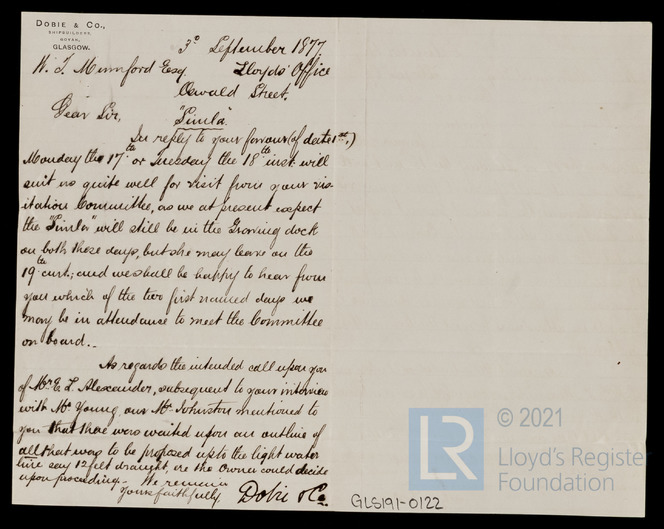 DOBIE & Co.,
SHIPBUILDERS,
GOVAN,
GLASGOW.
3ᵈ September 1877.
W. T. Mumford Esq. Lloyds' Office
Oswald Street.
Dear Sir,
"Simla"
In reply to your favour (of date 1st,)
Monday the 17th or Tuesday the 18th inst will
suit us quite well for visit from your vis-
itation Committee, as we at present expect
the "Simla" will still be in the Graving dock
on both these days, but she may leave on the
19th curt; and we shall be happy to hear from
you which of the two first named days we
may be in attendance to meet the Committee
on board.
As regards the intended call upon you
of Mr E. L. Alexander, subsequent to your interview
with Mr Young, our Mr Johnston mentioned to
you that there was waited upon an outline of
all that was to be proposed up to the light water
line say 12 feet draught, ere the Owner could decide
upon proceeding. We remain
Yours faithfully
Dobie & Co.
GLS191-0122
LR
© 2021
Lloyd's Register
Foundation